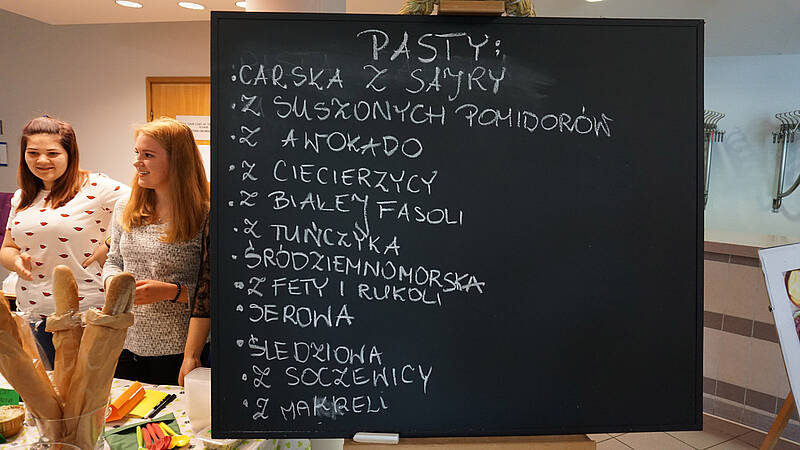 PASTY:
• CARSKA Z SAJRY
• Z SUSZONYCH POMIDORÓW
• Z AWOKADO
• Z CIECIERZYCY
• Z BIAŁEJ FASOLI
• Z TUŃCZYKA
• ŚRÓDZIEMNOMORSKA
• Z FETY I RUKOLI
• SEROWA
• ŚLEDZIOWA
• Z SOCZEWICY
• Z MAKRELI